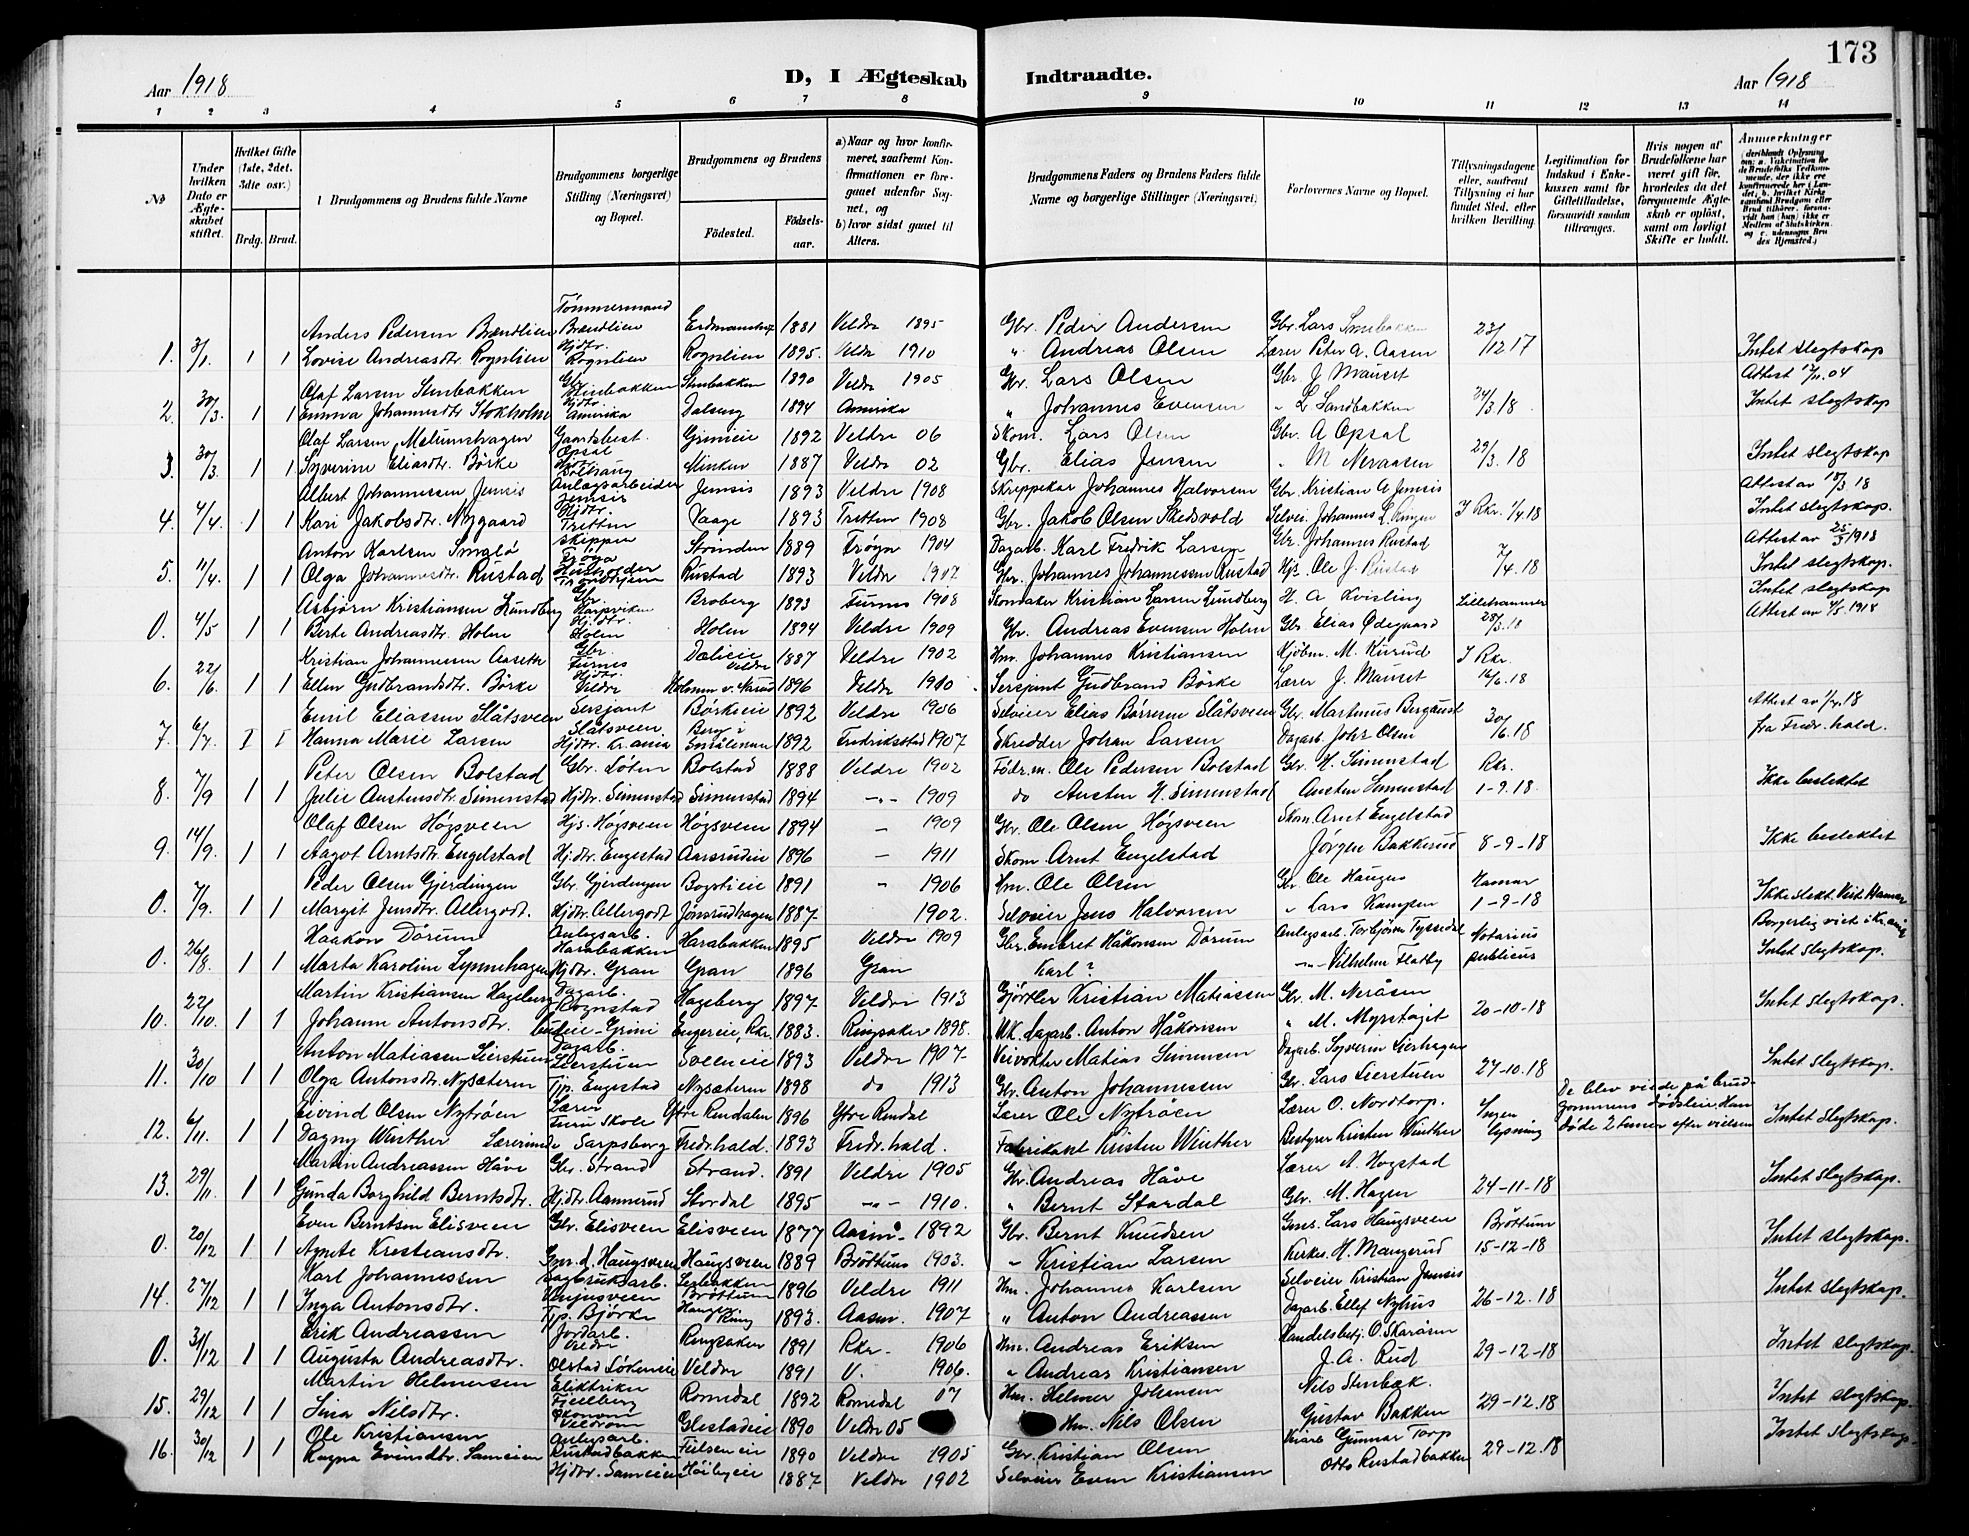 173
Aar 1918
D, I Ægteskab
Indtraadte.
Aar 1918
1 2 3 4 5 6 7 8 9 10 11 12 13 14
No
Under hvilken Dato er Ægteskabet stiftet.
Hvilket Gifte (1ste, 2det, 3die osv.)
Brdg. Brud.
Brudgommens og Brudens fulde Navne
Brudgommens borgerlige Stilling (Næringsvei) og Bopel.
Brudgommens og Brudens
Fødested. Fødselsaar.
a) Naar og hvor konfirmeret, saafremt Konfirmationen er foregaaet udenfor Sognet, og
b) hvor sidst gaaet til Alters.
Brudgommens Faders og Brudens Faders fulde Navne og borgerlige Stillinger (Næringsvei)
Forlovernes Navne og Bopel.
Tillysningsdagene eller, saafremt Tillysning ei har fundet Sted, efter hvilken Bevilling.
Legitimation for Indskud i Enkekassen samt for Giftetilladelse, forsaavidt saadan tiltrænges.
Hvis nogen af Brudefolkene har været gift før, hvorledes da det foregaaende Ægteskab er opløst, samt om lovligt Skifte er holdt.
Anmerkninger
Tømmermand
Anders Pedersen Brændlien Brændlien 1881 Veldre 1895 Gbr. Peder Andersen Gbr. Lars 23/12 17
1. 3/1. 1 1 Lovise Andreasdtr. Rognlien Hjdtr. Rognlien Rognlien 1895. Veldr 1910 " Andreas Olsen Lærer Peter A. Aasen Intet slegtskap
Olaf Larsen Stenbakken Gbr. Stenbakken Stenbakken 1890 Veldre 1905 Gbr. Lars Olsen Gbr. J. Mauset
2. 30/3. 1 1 Emma Johannesdtr. Stokholm Hjdtr. Amerika Dalseng 1894 Amerika " Johannes Evensen " L. Sandbakken 24/3. 18. Intet slegtskap
Olaf Larsen Melumshagen Gaardsbest. Opsal 1892 Veldre 06 Skom. Lars Olsen Gbr. A Opsal
3. 30/3. 1 1 Syverine Eliasdtr. Børke 1887 Veldre 02 Gbr. Elias Jensen " M Neraasen 29/3. 18 Intet slegtskap
Albert Johannessen Jemsis Anlægsarbeider Jemsis Jemsis 1893 Veldre 1908 Skreppekar Johannes Halvorsen Gbr. Kristian A Jemsis Attest av 17/3 18
4. 4/4. 1 1 Kari Jakobsdtr. Nygaard Hjdtr. Tretten Vaage 1893 Tretten 1908 Gbr. Jakob Olsen Skedsvold Selvei. Johannes L. Ringen I Rkr. 1/4. 18 Intet slegtskap.
Anton Karlsen Smaló Skipper Frøya Strinden 1889 Frøya 1904 Dagarb. Karl Fredrik Larsen Gbr. Johannes Rustad Attest av 25/3 1918
5. 11/4. 1 1 Olga Johannesdtr. Rustad Rustad 1893 Veldre 1907 Gbr. Johannes Johannessen Rustad Hjs. Ole J. Rustad 7/4. 18 Intet slegtskap.
Asbjørn Kristiansen Lundberg Gbr. Broberg 1893 Furnes 1908 Skomaker Kristian Larsen Lundberg H. A Kvisling Lillehammer Intet slegtskap
0. 4/5 1 1 Berte Andreasdtr. Holm Hjdtr. Holen Holen 1894 Veldre 1909 Gbr. Andreas Evensen Holm Gbr. Elias Ødegaard 28/3. 18
Kristian Johannessen Aaseth Gbr. Furnes Dælieie Veldre 1887 Veldre 1902 Hm. Johannes Kristiansen Kjøbm. M. Kurud I Rkr.
6. 22/6. 1 1 Ellen Gudbrandsdtr. Børke Hjdtr. Veldre 1896 Veldre 1910 Sersjant Gudbrand Børke Lærer J. Mauset 16/6. 18
Emil Eliassen Slåtsveen Sersjant Slåtsveen Børkeeie 1892 Veldre 1906 Selveier Elias Børresen Slåtsveen Gbr. Martinus Bergaust Attest av 1/4. 18
7. 6/7. I I Hanna Marie Larsen Hjdtr. Kr.ania Berg i Smålenene 1892 Fredriksstad 1907 Skredder Johan Larsen Dagarb. Johs Olsen 30/6. 18 fra Fredr. hald.
Peter Olsen Bolstad Gbr. Løten Bolstad 1888 Veldre 1902 Fôdr.m. Ole Pedersen Bolstad Gbr. H. Simenstad Rkr.
8. 7/9 1 1 Julie Austensdtr. Simenstad Hjdtr. Simenstad Simenstad 1894 -"- 1909 do Austen H. Simenstad Austen Simenstad 1-9. 18. Ikke beslektet
Olaf Olsen Høgsveen Hjs. Høgsveen Høgsveen 1894 - 1909 Gbr. Ole Olsen Høgsveen Skom. Arnt Engelstad
9. 14/9. 1 1 Aagot Arntsdtr. Engelstad Hjdtr. Engestad Aarsrudeie 1896 - 1911 Skom Arnt Engelstad Jørgen Bakkerud 8-9-18 Ikke beslektet
Peder Olsen Gjerdingen Gbr. Gjerdingen Bogstieie 1891 " 1906 Hm. Ole Olsen Gbr. Ole Hauges Hamar
0. 7/9. 1 1 Margit Jensdtr. Allergodt. Hjdtr. Allergodt Jønsrudhagen 1887 1902. Selveier Jens Halvorsen " Lars Kampen 1-9-18 Ikke slekt. Viet Hamar
Haakon Dørum Anlegsarb. Harabakken Harabakken 1895 Veldre 1909 Gbr. Embret Håkonsen Dørum Anlegsarb. Torbjørn Tyssedal Notarius Borgerlig viet i Kr.ania
0. 26/8. 1 1 Marta Karoline Lynnehagen Hjdtr. Gran Gran 1896 Gran Karl? -"- Vilhelm Flatby publicus Intet slegtskap.
Martin Kristiansen Hageberg Dagarb. Rognstad Hageberg 1897 Veldre 1913 Gjørtler Kristian Matiassen Gbr. M. Neråsen
10. 22/10. 1 1 Johanne Antonsdtr. budeie - Grini Engereie, Rkr. 1883. Ringsaker 1898. Uk. dagarb. Anton Håkonsen " M. Myrstøgit 20-10-18 Intet slegtskap.
Anton Matiassen Lierstuen Dagarb. Lierstuen Sveeneie 1893 Veldre 1907 Veivokter Matias Simensen Dagarb. Syverin Lierhagen
11. 30/10 1 1 Olga Antonsdtr. Nysæteren Tjp. Engestad Nysæteren 1898 do 1913 Gbr. Anton Johannessen Gbr. Lars Lierstuen 27-10. 18 Intet slegtskap.
Eivind Olsen Nytrøen Lærer Furu Skole Ytre Rendalen 1896 Ytre Rendal Lærer Ole Nytrøen Lærer O. Nordtorp. Ingen De blev viede på brudgommens dødsleie. Han
12. 6/11. 1 1 Dagny Winther Lærerinde Sarpsborg Fredr.hald. 1893 Fredr.hald. Fabrikant Kristen Winther Bestyrer Kristen Winther lysning døde 2 timer efter vielsen Intet slegtskap.
Martin Andreassen Håve Gbr. Strand Strand. 1891 Veldre 1905 Gbr. Andreas Håve Lærer A. Hogstad
13. 29/11. 1 1 Gunda Borghild Berntsdtr. Hjdtr. Aannerud Stordal 1895 -"- 1910. " Bernt Stordal Gbr. M. Hagen 24-11-18 Intet slegtskap.
Even Berntsen Elisveen Gbr. Elisveen Elisveen 1877 Aasm. 1892 Gbr. Bernt Knudsen Gms. Lars Haugsveen Brøttum
0. 20/12 1 1 Agnete Kristiansdtr. Gmr.d. Haugsveen Haugsveen 1889 Brøttum 1903. " Kristian Larsen Kirkes. H. Mangerud 15-12-18 Intet slegtskap.
Karl Johannessen Sagbruksarb. Brøttum 1896 Veldre 1911 Hm. Johannes Karlsen Selveier Kristian Jemsis
14. 27/12 1 1 Inga Antonsdtr. Tjp. Bjørke 1893. Aasm. 1907 " Anton Andreassen Dagarb. Ellef Nyhus 26-12. 18 Intet slegtskap.
Erik Andreassen Jordarb. Veldre Ringsaker 1891 Rkr. 1906 Hm. Andreas Eriksen Handelsbetj. O. Skaråsen
0. 31/12 1 1 Augusta Andreasdtr. Olstad Løkeneie Veldre 1891 V. 1906. " Andreas Kristiansen J. A. Rud 29-12-18 Intet slegtskap.
Martin Helmersen Elektriker Fjellberg Romedal 1892 Romedal 07 Hm. Helmer Johansen Nils Stenbæk.
15. 29/12 1 1 Lina Nilsdtr. Glestadeie 1890 Veldre 05 Hm. Nils Olsen Gustav Bakken 29-12. 18 Intet slegtskap.
Ole Kristiansen Anlegsarb. Rustadbakken 1890 Veldre 1905 Gbr. Kristian Olsen Gunnar Torp
16. 30/12 1 1 Ragna Evensdtr. Sameien Hjdtr. Sameien Høibyeie 1887 Veldre 1902 Selveier Even Kristiansen Otto Rustadbakken 29-12. 18 Intet slegtskap.